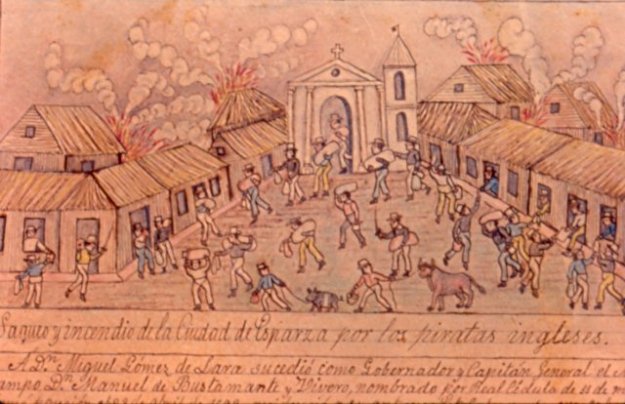 Saqueo y incendio de la Ciudad de Esparza por los piratas ingleses.
A Dn Miguel Gómez de Lara sucedió como Gobernador y Capitán General el M
ampo Dn Manuel de Bustamante y Vivero, nombrado por Real Cédula de 11 de m